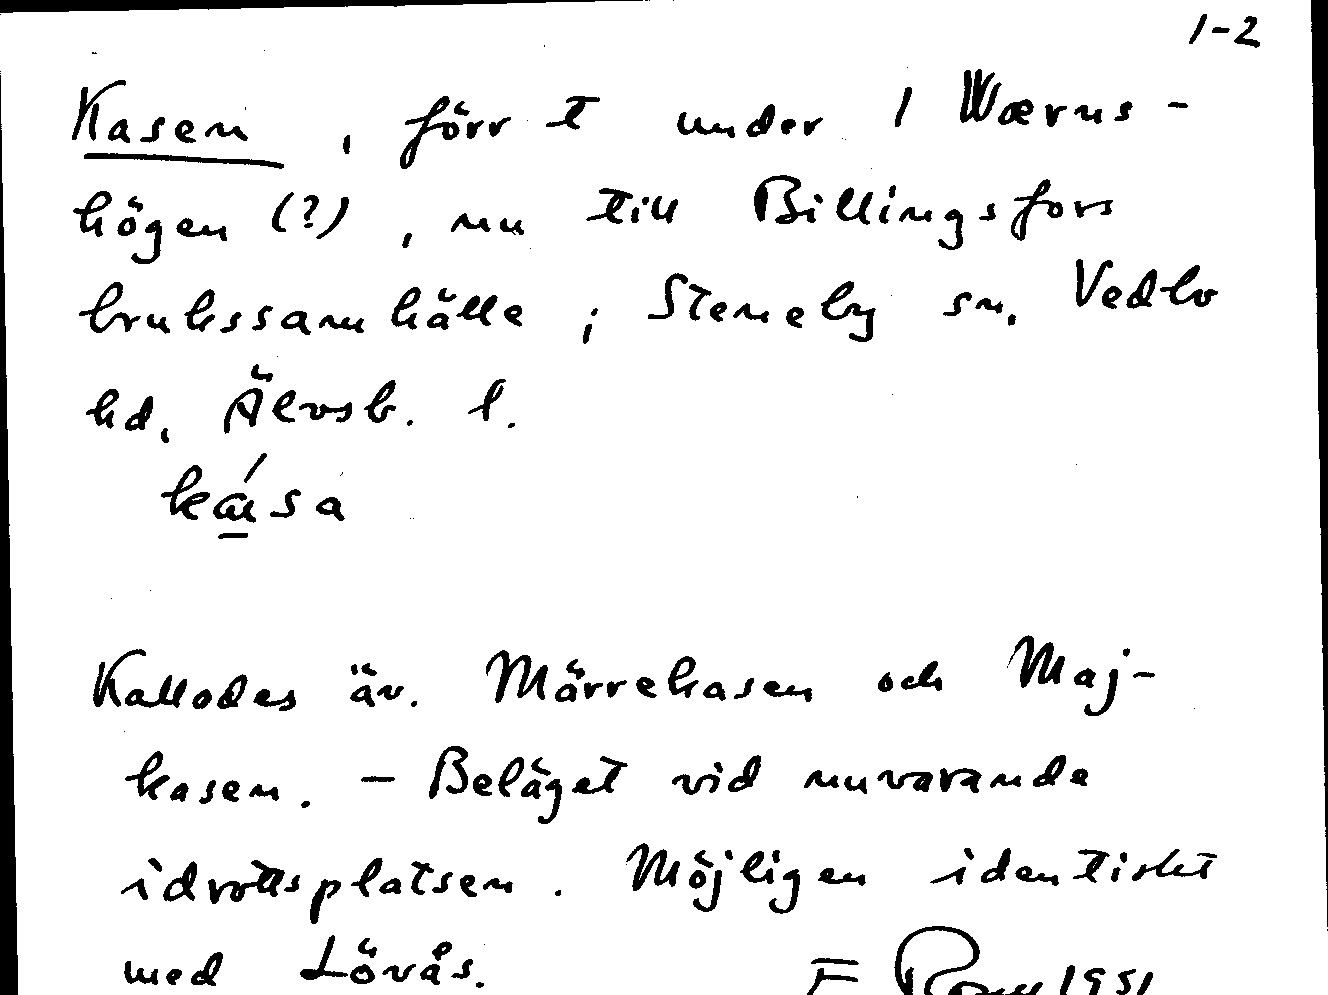 1-2
Kasen, förr t under 1 Wærns-
högen (?), nu till Billingsfors
brukssamhälle; Steneby sn. Vedbo
hd. Älvsb. l.
ká̱sa
Kallades äv. Märrekasen och Maj-
kasen. - Beläget vid nuvarande
idrottsplatsen. Möjligen identiskt
med Lövås. 1951